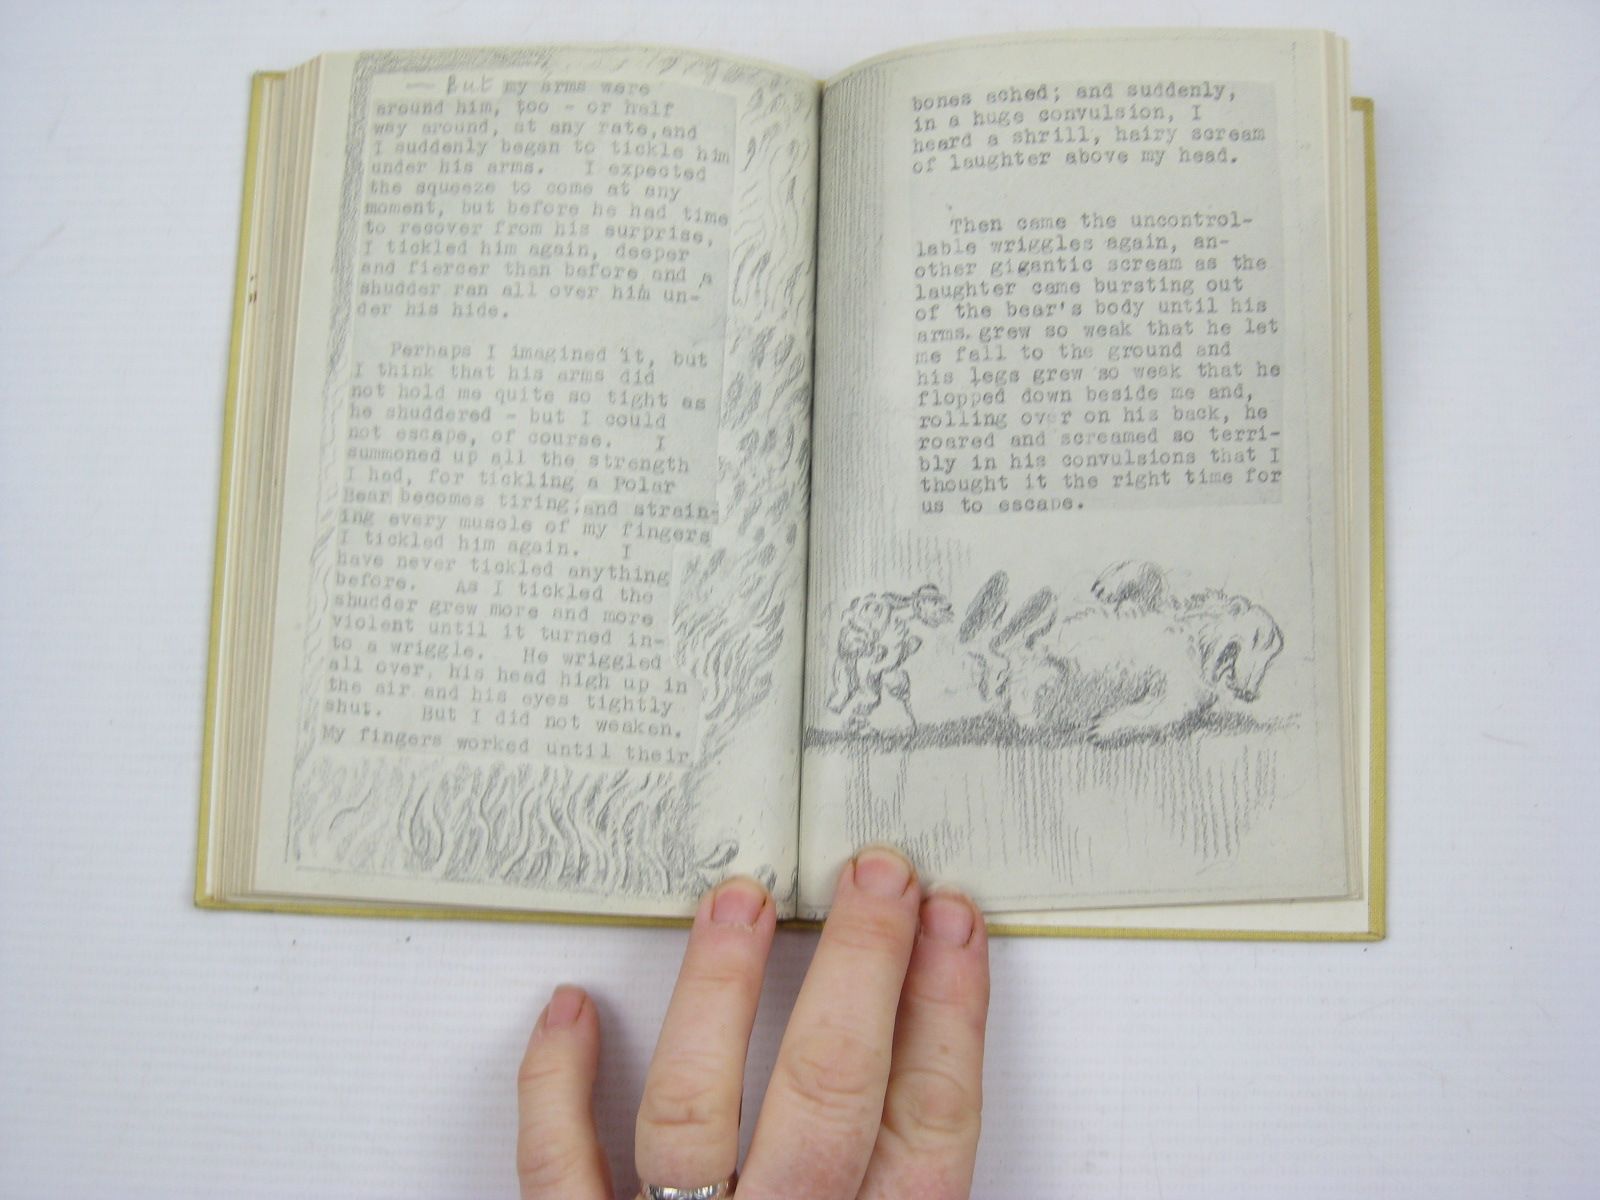 — But my arms were
around him, too - or half
way around, at any rate,and
I suddenly began to tickle him
under his arms. I expected
the squeeze to come at any
moment, but before he had time
to recover from his surprise,
I tickled him again, deeper
and fiercer than before and a
shudder ran all over him un-
der his hide.
Perhaps I imagined it, but
I think that his arms did
not hold me quite so tight as
he shuddered - but I could
not escape, of course. I
summoned up all the strength
I had, for tickling a Polar
Bear becomes tiring,and strain-
ing every muscle of my fingers
I tickled him again. I
have never tickled anything
before. As I tickled the
shudder grew more and more
violent until it turned in-
to a wriggle. He wriggled
all over, his head high up in
the air and his eyes tightly
shut. But I did not weaken.
My fingers worked until their
bones ached; and suddenly,
in a huge convulsion, I
heard a shrill, hairy scream
of laughter above my head.
Then came the uncontrol-
lable wriggles again, an-
other gigantic scream as the
laughter came bursting out
of the bear's body until his
arms. grew so weak that he let
me fall to the ground and
his legs grew so weak that he
flopped down beside me and,
rolling over on his back, he
roared and screamed so terri-
bly in his convulsions that I
thought it the right time for
us to escape.